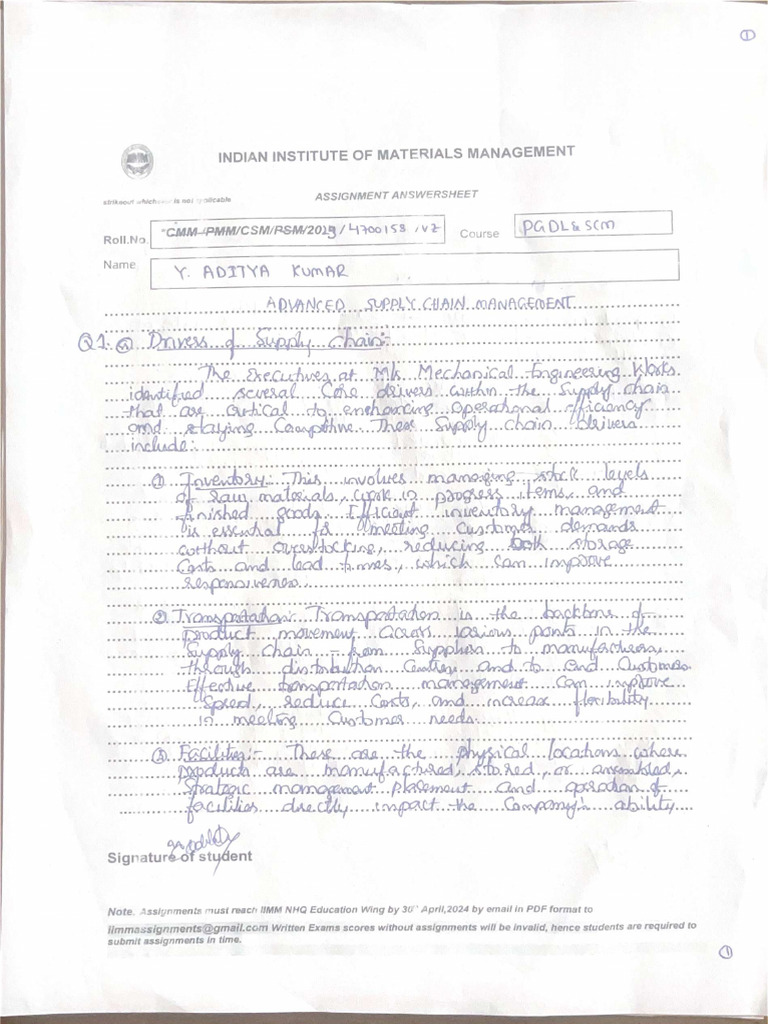 ①
INDIAN INSTITUTE OF MATERIALS MANAGEMENT
ASSIGNMENT ANSWERSHEET
strikeout whichever is not applicable
Roll.No. *CMM-/PMM/CSM/PSM/2023/4700158/V2
Course PGDL&SCM
Name Y. ADITYA KUMAR
ADVANCED SUPPLY CHAIN MANAGEMENT
Q1. ⓐ Drivers of Supply chain:-
The Executives at M/s Mechanical Engineering Works
identified several Core drivers within the Supply chain
that are critical to enhancing operational efficiency
and staying Competitive. These Supply chain drivers
include:
① Inventory:- This involves managing stock levels
of raw materials, work in progress items, and
finished goods. Efficient inventory management
is essential for meeting Customer demands
without overstocking, reducing both storage
Costs and lead times, which can improve
responsiveness.
② Transportation:- Transportation is the backbone of
product movement across various points in the
Supply chain - from Suppliers to manufacturers,
through distribution Centers and to end Customers.
Effective transportation management can improve
Speed, reduce Costs, and increase flexibility
in meeting Customer needs.
③ Facilities:- These are the physical locations where
products are manufactured, stored, or assembled.
Strategic management placement and operation of
facilities directly impact the Company's ability
Signature of student
Note. Assignments must reach IIMM NHQ Education Wing by 30th April,2024 by email in PDF format to
iimmassignments@gmail.com Written Exams scores without assignments will be invalid, hence students are required to
submit assignments in time.
①